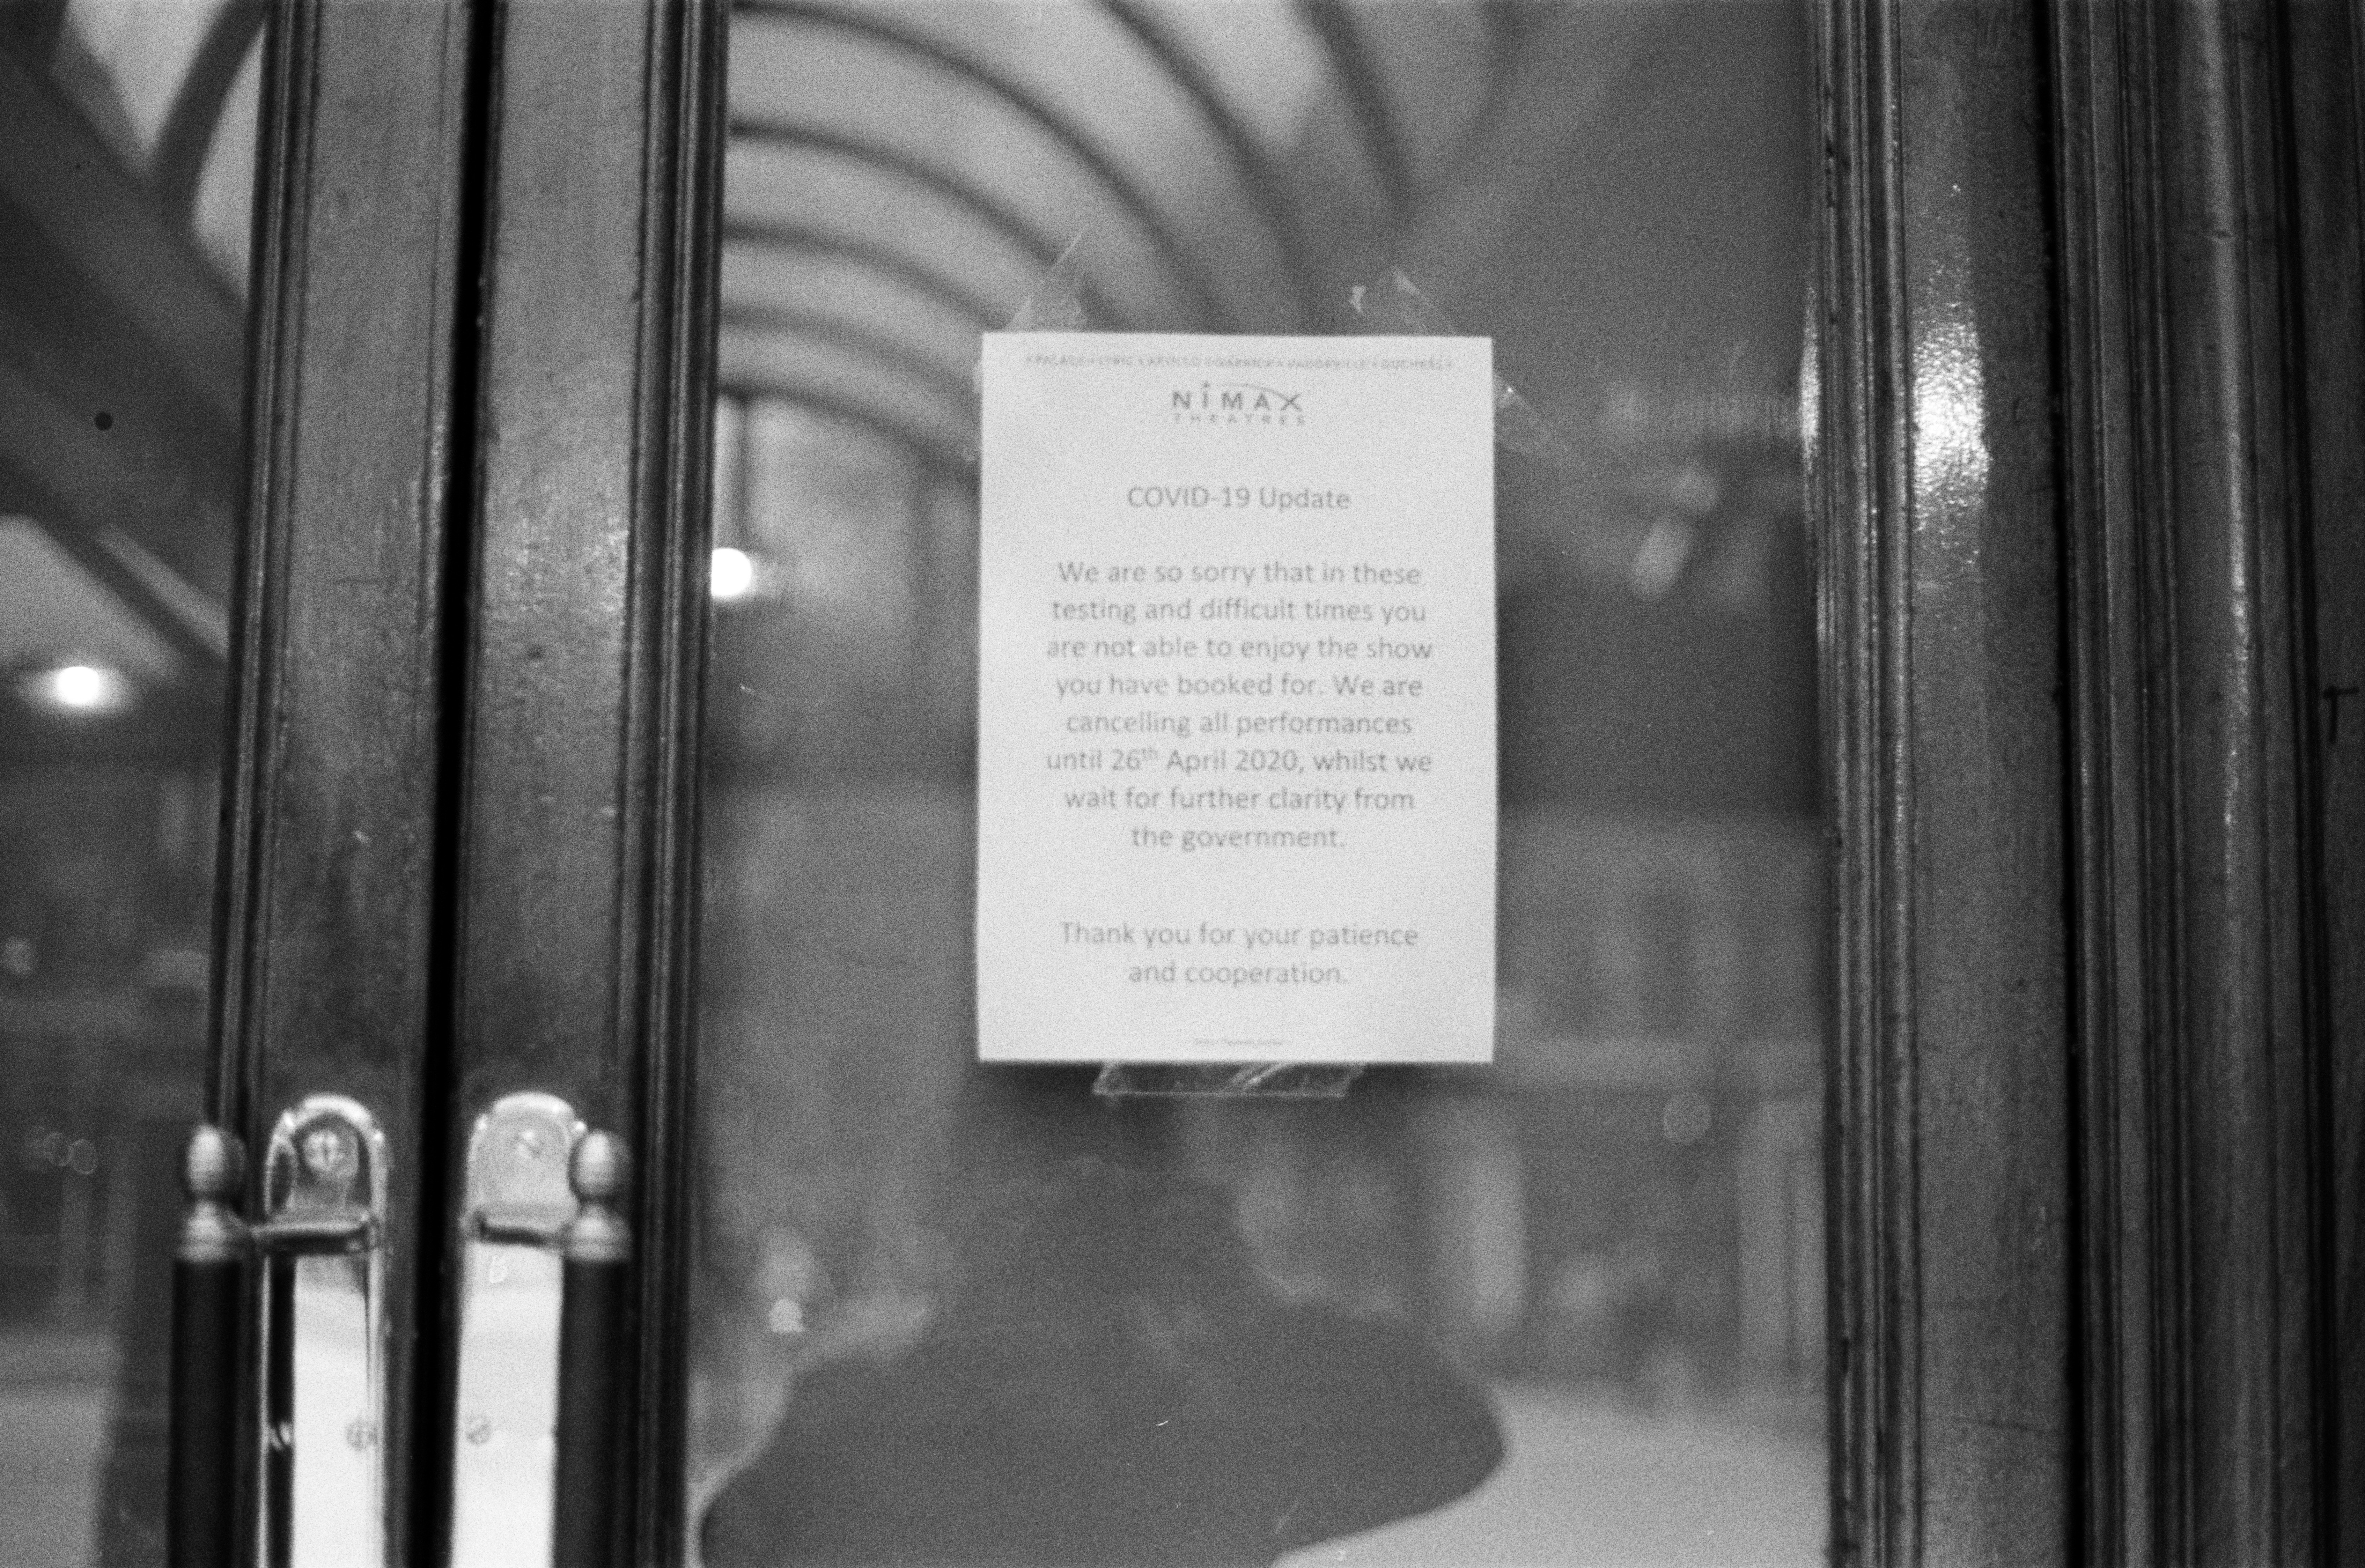 PALACE • LYRIC • APOLLO • GARRICK • VAUDEVILLE • DUCHESS
NIMAX
THEATRES
COVID-19 Update
We are so sorry that in these
testing and difficult times you
are not able to enjoy the show
you have booked for. We are
cancelling all performances
until 26th April 2020, whilst we
wait for further clarity from
the government.
Thank you for your patience
and cooperation.